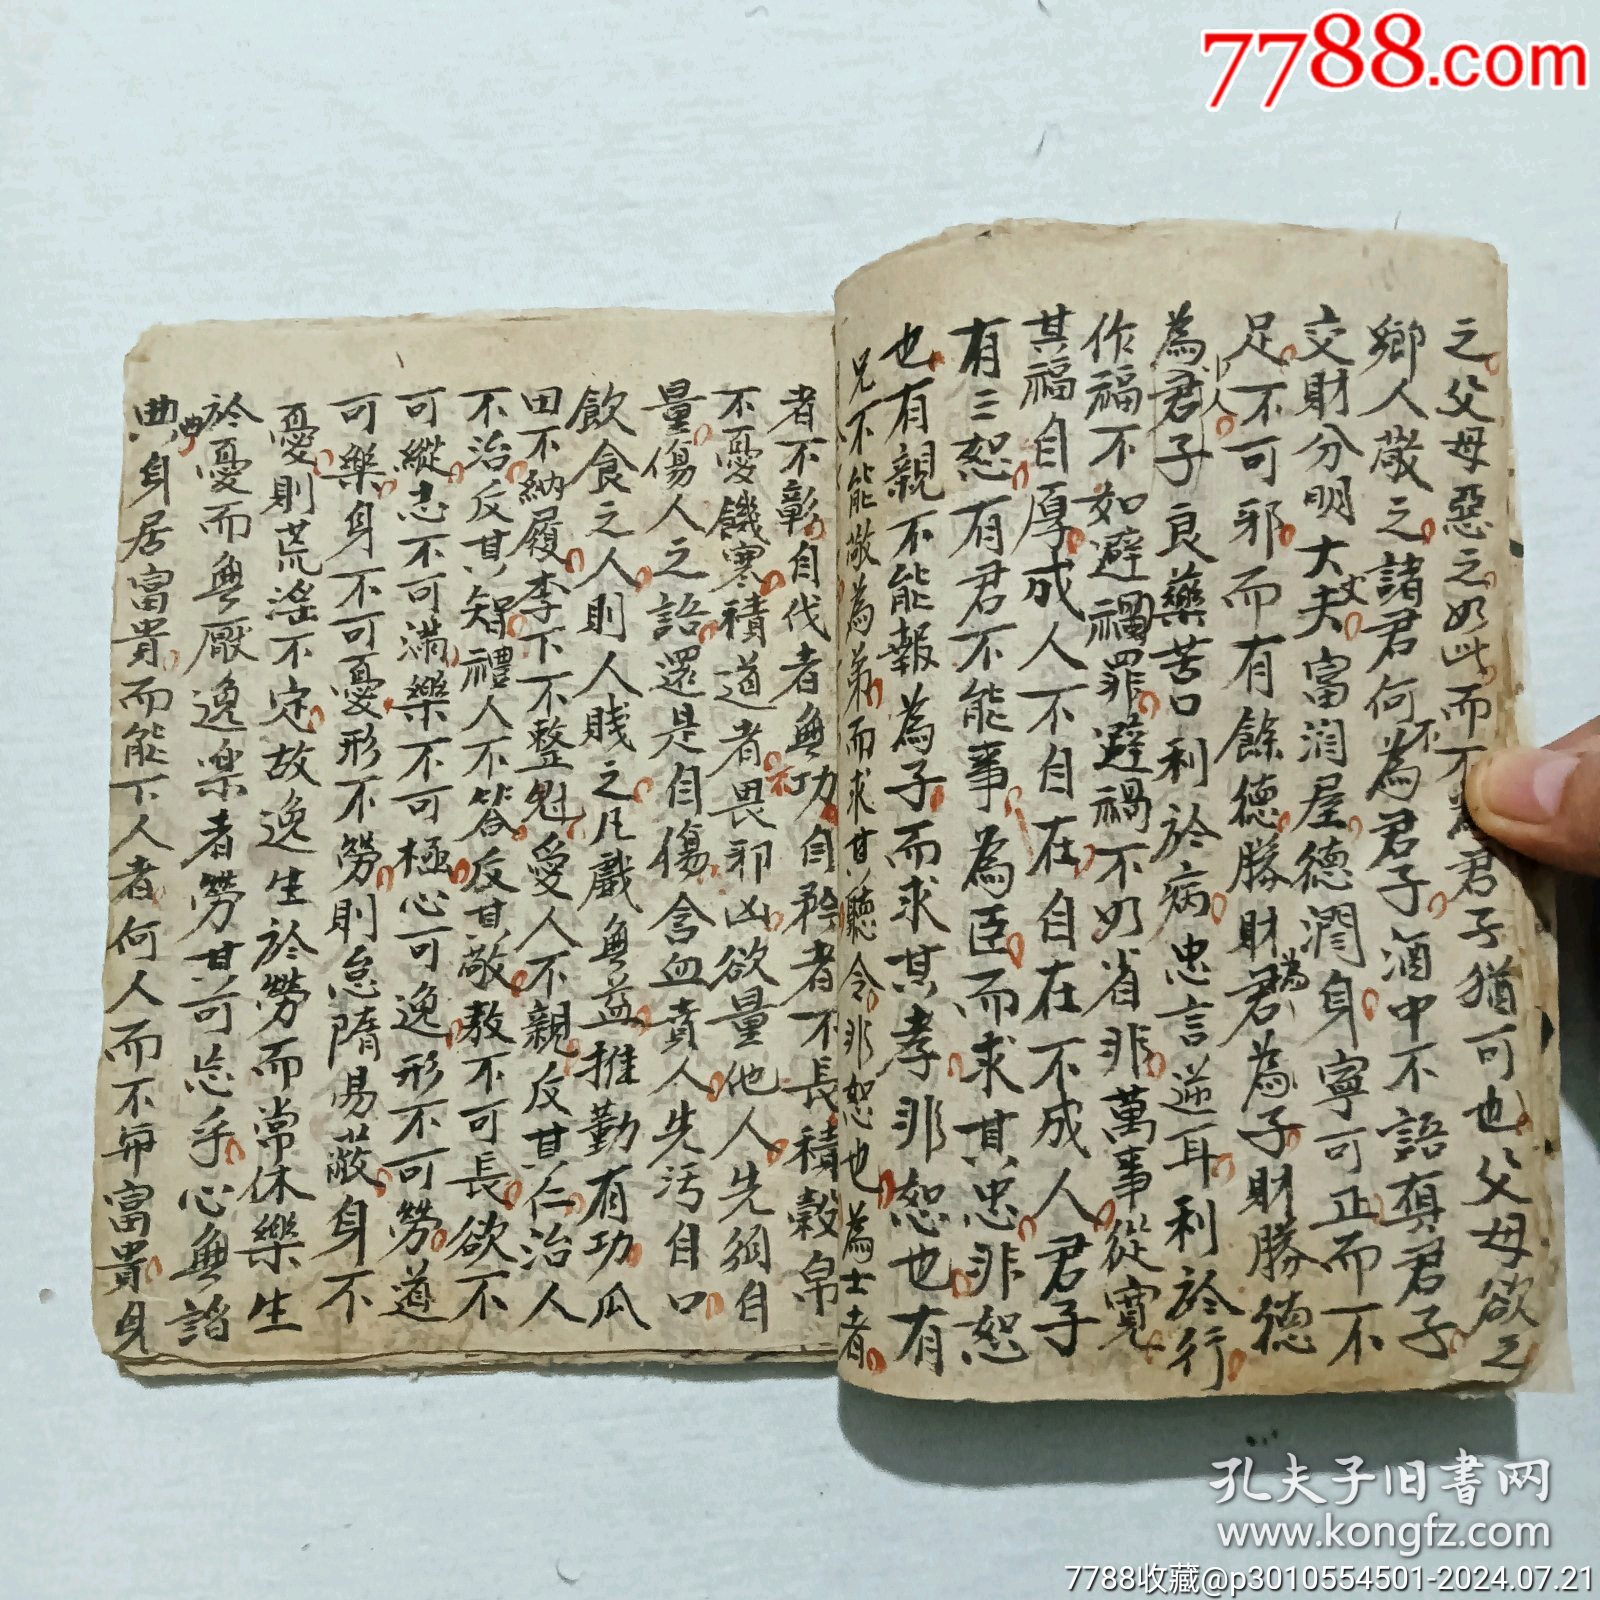 7788.com
之父母惡之如此而不為君子猶可也父母欲之
鄉人敬之諸君何不為君子酒中不語真君子
交財分明大丈夫富潤屋德潤身寧可正而不
足不可邪而有餘德勝財為君子財勝德
為小人君子良藥苦口利於病忠言逆耳利於行
作福不如避禍罪避禍不如省非萬事從寬
其福自厚成人不自在自在不成人君子
有三恕有君不能事為臣而求其忠非恕
也有親不能報為子而求其孝非恕也有
兄不能敬為弟而求其聽令非恕也為士者
者不彰自伐者無功自矜者不長積穀帛
不憂饑寒積道者畏邪凶欲量他人先須自
量傷人之語還是自傷含血賁人先污自口
飲食之人則人賤之凡戲無益推勤有功瓜
田不納履李下不整魁愛人不親反其仁治人
不治反其智禮人不答反其敬敖不可長欲不
可縱志不可滿樂不可極心可逸形不可勞道
可樂身不可憂形不勞則怠隋易蔽身不
憂則荒淫不定故逸生於勞而常休樂生
於憂而無厭逸樂者勞其可忘乎心無諂
典身居富貴而能下人者何人而不富貴身
孔夫子旧书网
www.kongfz.com
7788收藏@p3010554501-2024.07.21